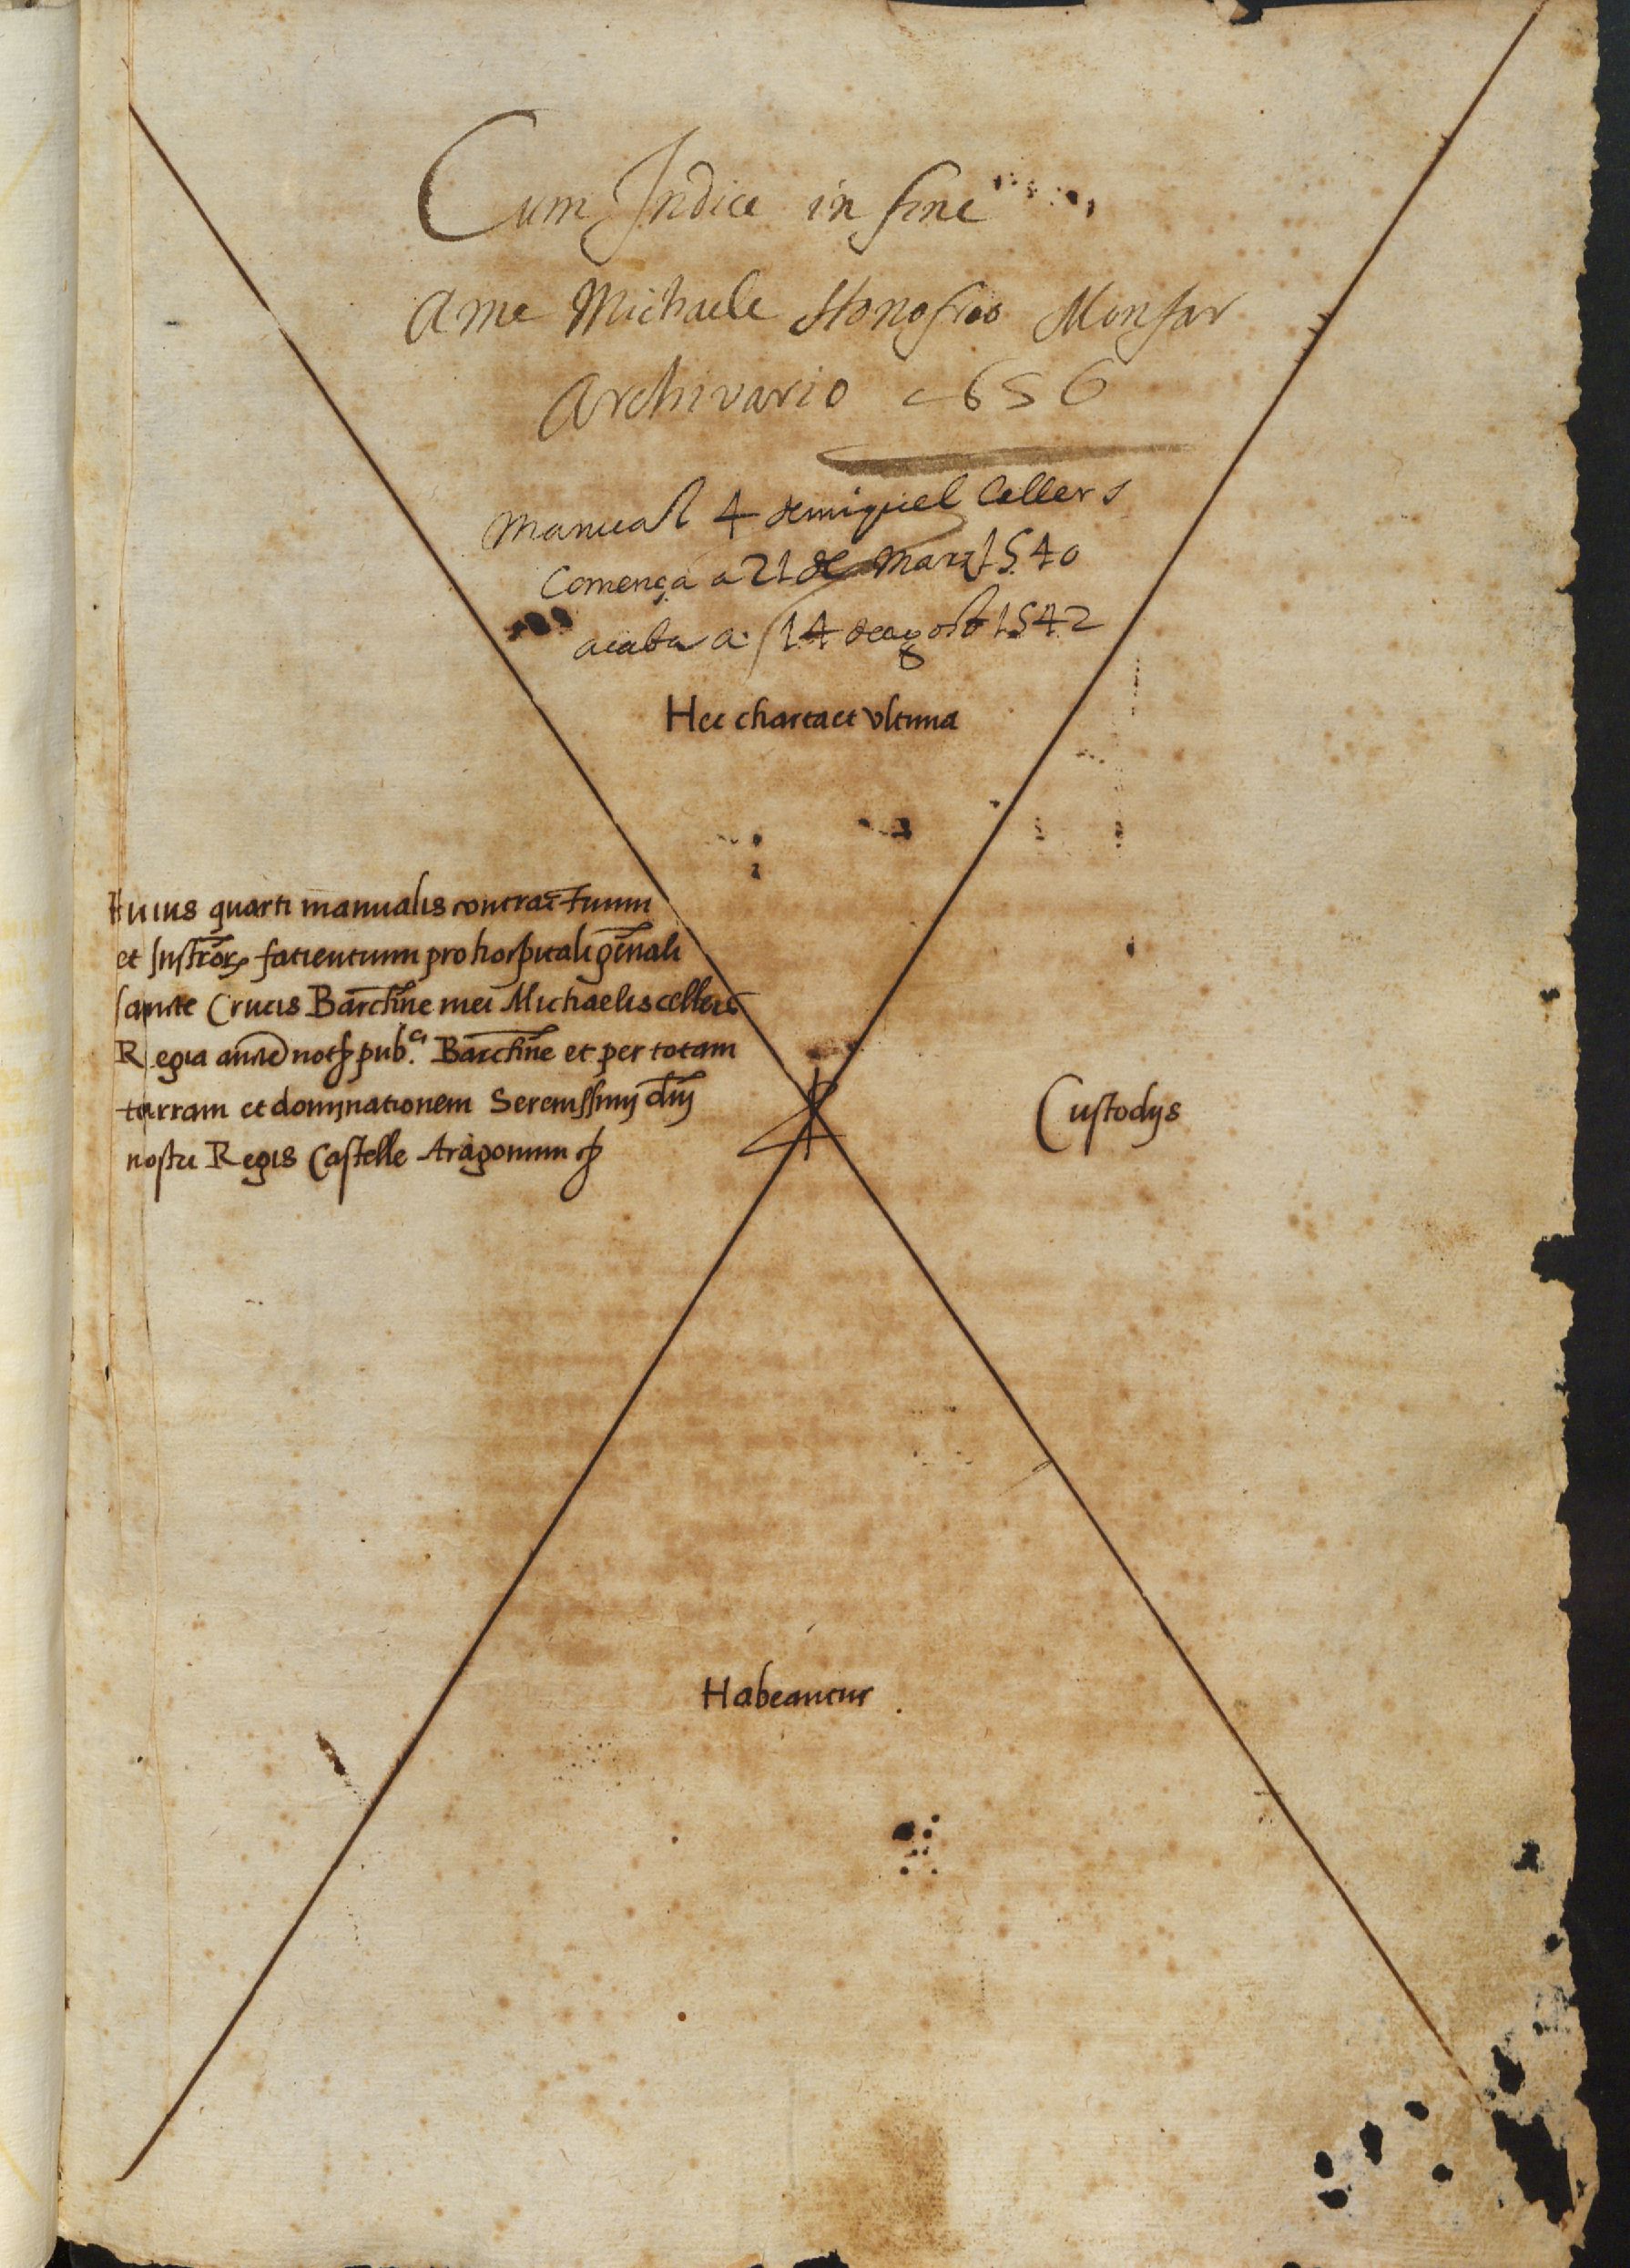 Cum Indice in fine
A me Michaele Honofrio Monfar
Archivario 1656
Manual 4 de miquel Cellers
Comença a 21 de Mars 1540
acaba a 14 de agost 1542
Hec charta et vltima
Huius quarti manualis contractuum
et Instror facientium pro hospitali gñali
sancte Crucis Barchñe mei Michaelis cellers
Regia aucte not pub.ci Barchñe et per totam
terram et dominationem Serenissimi dñi
nostri Regis Castelle Aragonum
Custodijs
Habeantur